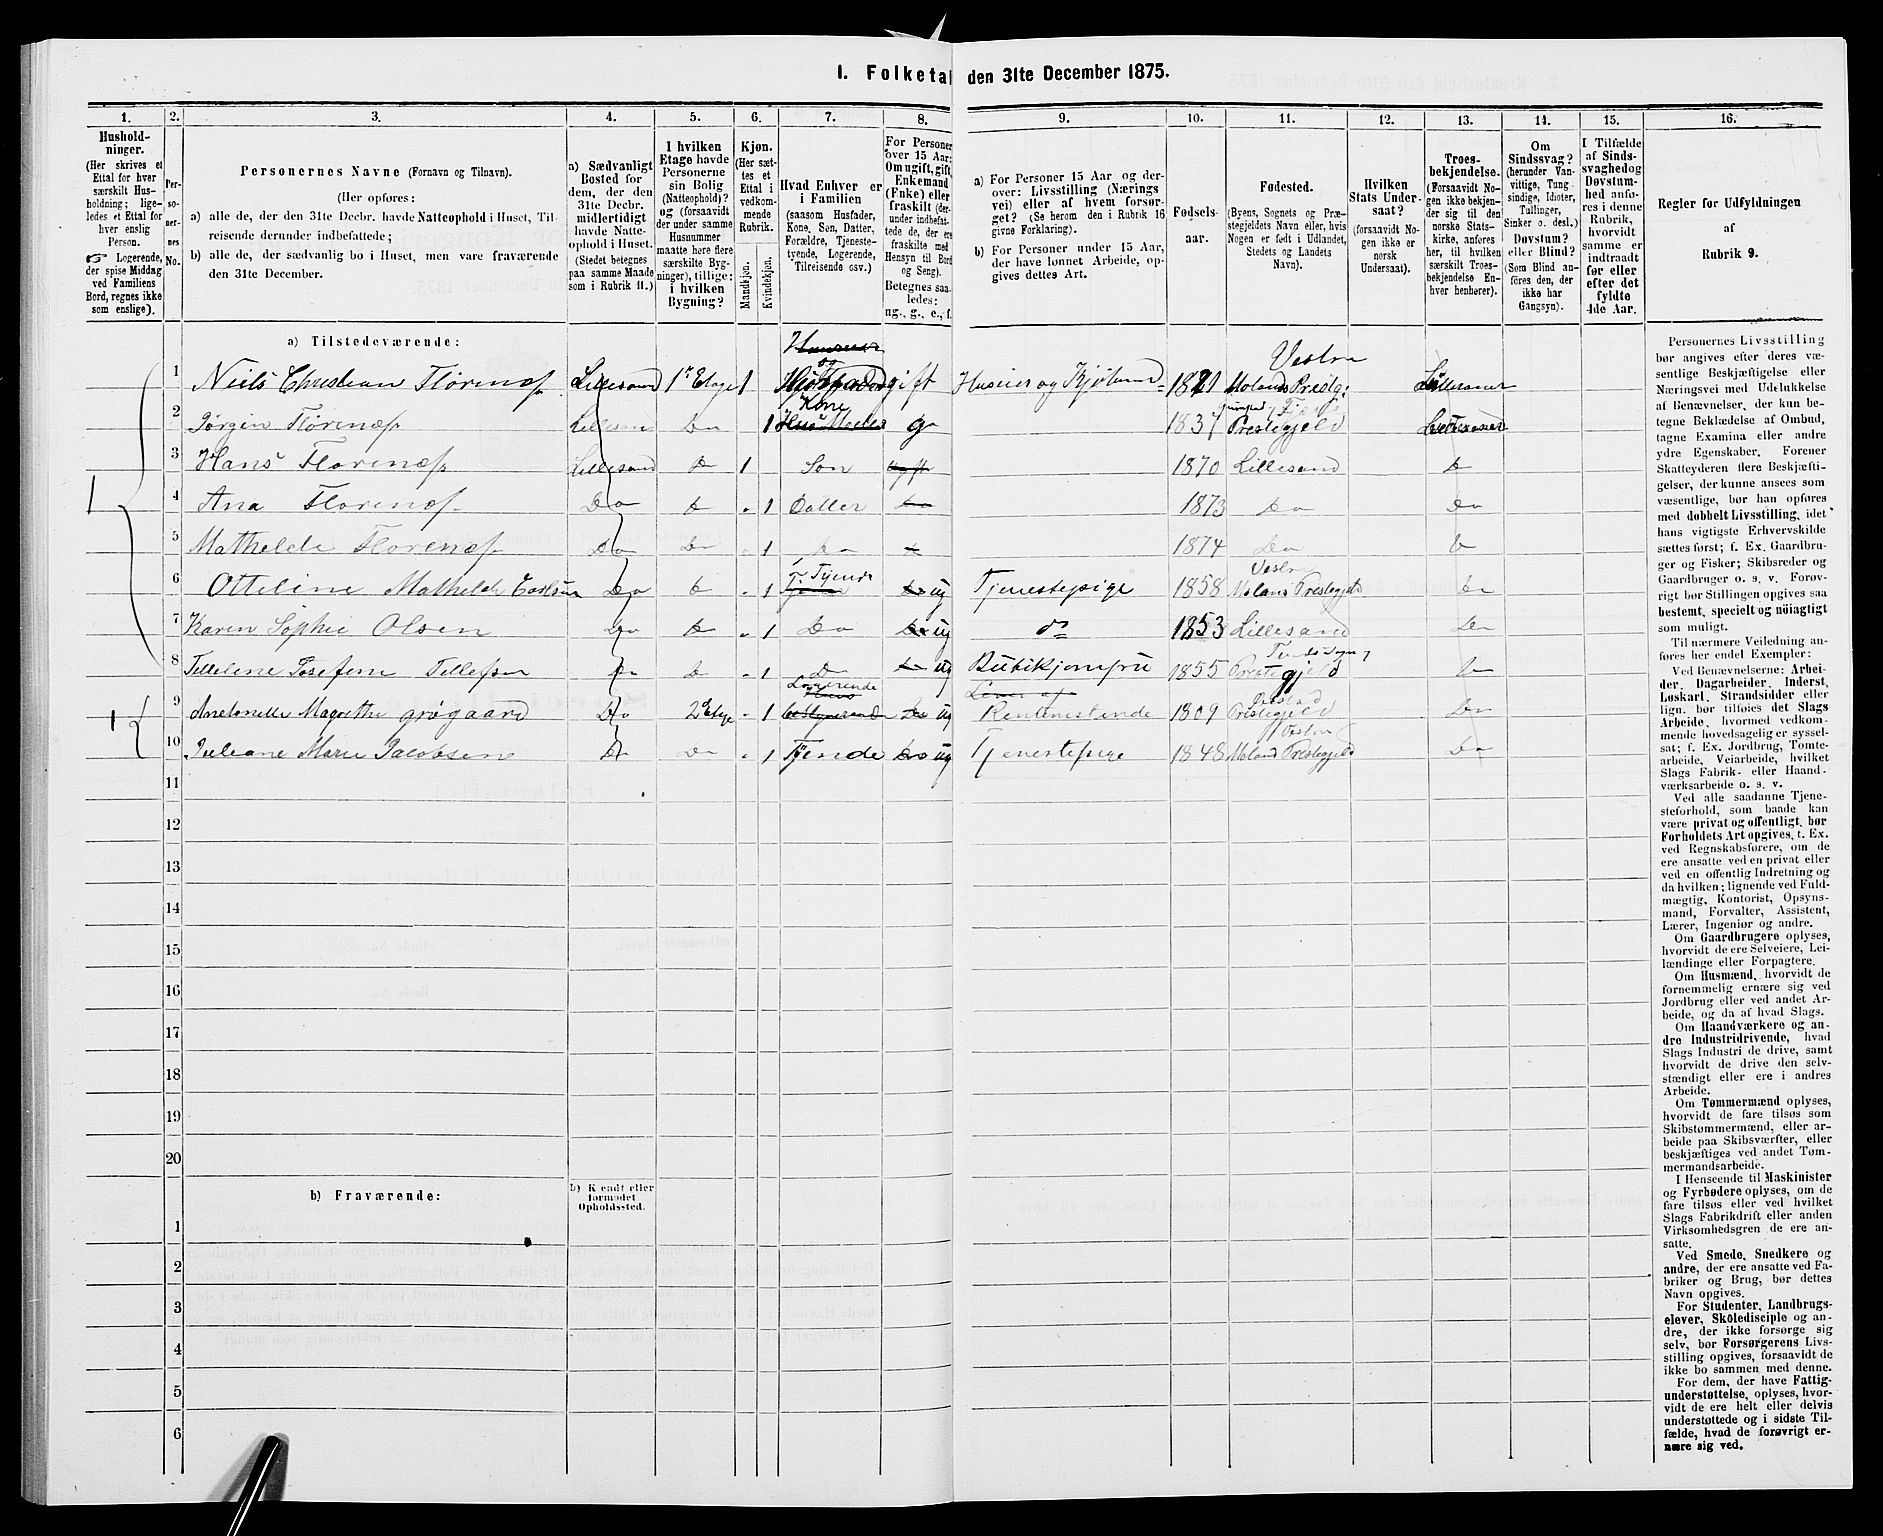 I. Folketal den 31te December 1875.
1. 2. 3. 4. 5. 6. 7. 8. 9. 10. 11. 12. 13. 14. 15. 16.
Hushold-
ninger.
(Her skrives et
Ettal for hver
særskilt Hus-
holdning; lige-
ledes et Ettal for
hver enslig
Person.
☞ Logerende,
der spise Middag
ved Familiens
Bord, regnes ikke
som enslige).
Per-
so-
ner-
nes
No.
Personernes Navne (Fornavn og Tilnavn).
(Her opføres:
a) alle de, der den 31te Decbr. havde Natteophold i Huset, Til-
reisende derunder indbefattede;
b) alle de, der sædvanlig bo i Huset, men vare fraværende
den 31te December.
a) Sædvanligt
Bosted for
dem, der den
31te Decbr.
midlertidigt
havde Natte-
ophold i Huset.
(Stedet betegnes
paa samme Maade
som i Rubrik 11.)
I hvilken
Etage havde
Personerne
sin Bolig
(Natteophold)?
og (forsaavidt
der under samme
Husnummer
maatte høre flere
særskilte Byg-
ninger), tillige:
i hvilken
Bygning?
Kjøn.
(Her sæt-
tes et
Ettal i
vedkom-
mende
Rubrik.
Mandkjøn.
Kvindekjøn.
Hvad Enhver er
i Familien
(saasom Husfader,
Kone, Søn, Datter,
Forældre, Tjeneste-
tyende, Logerende,
Tilreisende osv.)
For Personer
over 15 Aar:
Om ugift, gift,
Enkemand
(Enke) eller
fraskilt (der-
under indbefat-
tede de, der ere
fraskilte med
Hensyn til Bord
og Seng).
Betegnes saa-
ledes:
ug., g., e., f.
a) For Personer 15 Aar og der-
over: Livsstilling (Nærings
vei) eller af hvem forsør-
get? (Se herom den i Rubrik 16
givne Forklaring).
b) For Personer under 15 Aar,
der have lønnet Arbeide, op-
gives dettes Art.
Fødsels-
aar.
Fødested.
(Byens, Sognets og Præ-
stegjeldets Navn eller, hvis
Nogen er født i Udlandet,
Stedets og Landets
Navn).
Hvilken
Stats Under-
saat?
(forsaavidt No-
gen ikke er
norsk
Undersaat).
Troes-
bekjendelse.
(Forsaavidt No-
gen ikke bekjen-
der sig til den
norske Stats-
kirke, anføres
her, til hvilken
særskilt Troes-
bekjendelse En-
hver henhører).
Om
Sindssvag?
(herunder Van-
vittige, Tung
sindige, Idioter,
Tullinger,
Sinker o. desl.)
Døvstum?
eller Blind?
(Som Blind an-
føres den, der
ikke har
Gangsyn).
I Tilfælde
af Sinds-
svaghed og
Døvstum-
hed anfø-
res i denne
Rubrik,
hvorvidt
samme er
indtraadt
før eller
efter det
fyldte
4de Aar.
Regler for Udfyldningen
af
Rubrik 9.
a) Tilstedeværende:
1 Niels Christian Florenæs Lillesand 1ste Etage 1 og gift Huseier og Kjøbmand 1821 Vestre Molans Prestg:
2 Jørgin Florenæs Lillesand Do 1 Kone g 1837 Prestegjeld
3 Hans Florenæs Lillesand Do 1 Søn 1870 Lillesand Do
1 4 Ana Florenæs Do Do 1 Datter Do 1873 Do Do
5 Mathelde Florenæs Do Do 1 Do 1874 Do Do
6 Otteline Mathelde Carlsen Do Do 1 Tjende Do ug Tjenestepige 1858 Vestre Molans Prestegjeld Do
7 Karen Sophie Olsen Do Do 1 Do Do ug do 1853 Lillesand Do
8 Tellelene Josefine Tellefsen Do Do 1 Do Do ug Butikjomfru 1855 Prestegjeld Do
1 9 Anetonette Magrethe Grøgaard Do 2 Etage 1 Logerende Do ug Lever af Rentenestende 1809 Prestegjeld Do
10 Juliane Marie Jacobsen Do Do 1 Tjende Do ug Tjenestepige 1848 Vestre Molans Prestegjeld Do
11
12
13
14
15
16
17
18
19
20
b) Fraværende:
b) Kendt eller
formodet
Opholdssted.
1
2
3
4
5
6
Personernes Livsstilling
bør angives efter deres væ-
sentlige Beskjæftigelse eller
Næringsvei med Udelukkelse
af Benævnelser, der kun be-
tegne Beklædelse af Ombud,
tagne Examina eller andre
ydre Egenskaber. Forener
Skatteyderen flere Beskjæfti-
gelser, der kunne ansees som
væsentlige, bør han opføres
med dobbelt Livsstilling, idet
hans vigtigste Erhvervskilde
sættes først; f. Ex. Gaardbru-
ger og Fisker; Skibsreder og
Gaardbruger o. s. v. Forøv-
rigt bør Stillingen opgives saa
bestemt, specielt og nöiagtigt
som muligt.
Til nærmere Veiledning an-
føres her endel Exempler:
Ved Benævnelserne: Arbei-
der, Dagarbeider, Inderst,
Løskarl, Strandsidder eller
lign. bør tilføies det Slags
Arbeide, hvormed vedkom-
mende hovedsagelig er syssel-
sat; f. Ex. Jordbrug, Tomte-
arbeide, Veiarbeide, hvilket
Slags Fabrik- eller Haand-
værksarbeide o. s. v.
Ved alle saadanne Tjene-
steforhold, som baade kan
være privat og offentligt, bør
Forholdets Art opgives, t. Ex.
ved Regnskabsførere, om de
ere ansatte ved en privat eller
ved en offentlig Indretning og
da hvilken; lignende ved Fuld-
mægtig, Kontorist, Opsyns-
mand, Forvalter, Assistent,
Lærer, Ingeniør og andre.
Om Gaardbrugere oplyses,
hvorvidt de ere Selveiere, Lei-
lændinge eller Forpagtere.
Om Husmænd, hvorvidt de
fornemmelig ernære sig ved
Jordbrug eller ved andet Ar-
beide, og da af hvad Slags.
Om Haandværkere og an-
dre Industridrivende, hvad
Slags Industri de drive, samt
hvorvidt de drive den selv-
stændigt eller ere i andres
Arbeide.
Om Tømmermænd oplyses,
hvorvidt de fare tilsøs som
Skibstømmermænd, eller ar-
beide paa Skibsværfter, eller
beskjæftiges ved andet Tøm-
mermandsarbeide.
I Henseende til Maskinister
og Fyrbødere oplyses, om de
fare tilsøs eller ved hvilket
Slags Fabrikdrift eller anden
Virksomhedsgren de ere an-
satte.
Ved Smede, Snedkere og
andre, der ere ansatte ved Fa-
briker og Brug, bør dettes
Navn opgives.
For Studenter, Landbrugs-
elever, Skoledisciple og an-
dre, der ikke forsørge sig
selv, bør Forsørgerens Livs-
stilling opgives, forsaavidt de
ikke bo sammen med denne.
For dem, der have Fattig-
understøttelse, oplyses, hvor-
vidt de ere helt eller delvis
understøttede og i sidste Til-
fælde, hvad de forøvrigt er-
nære sig ved.